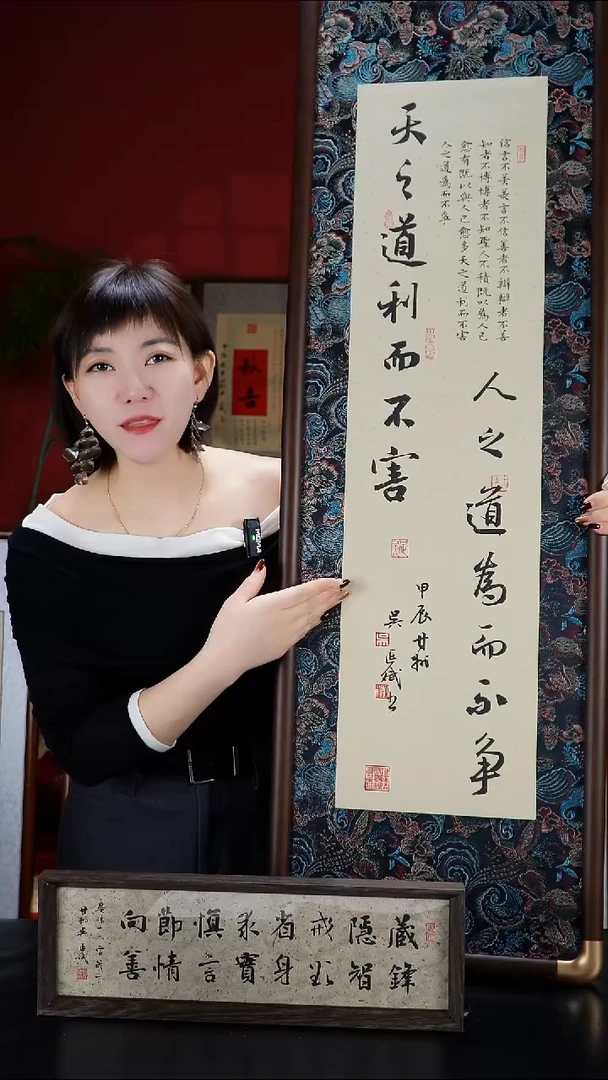 天之道利而不害
人之道為而不争
信言不美美言不信善者不辯辯者不善
知者不博博者不知聖人不積既以為人己
愈有既以與人己愈多天之道利而不害
人之道為而不争
甲辰
吴
藏鋒
隱智
戒欲
省身
求實
慎言
節情
向善